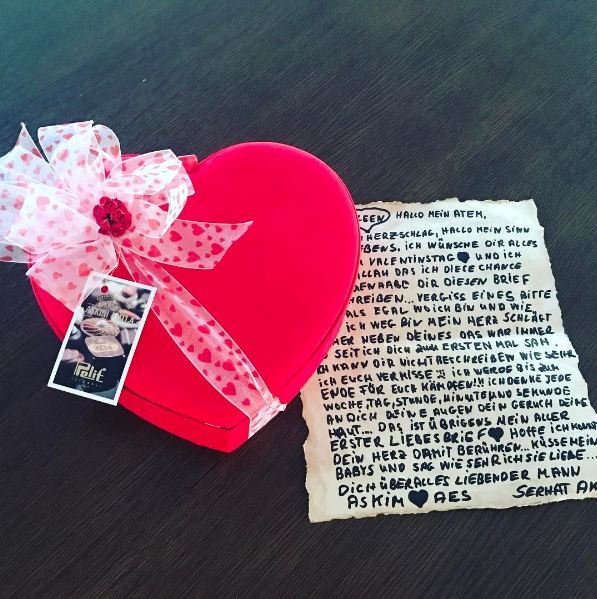 Pelit
LEEN HALLO MEIN ATEM,
HERZSCHLAG, HALLO MEIN SINN
EBENS. ICH WÜNSCHE DIR ALLES
VALENTINSTAG ♥ UND ICH
ALLAH DAS ICH DIESE CHANCE
DIR DIESEN BRIEF
REIBEN... VERGISS EINES BITTE
ALS EGAL WO ICH BIN UND WIE
ICH WEG BIN MEIN HERZ SCHLÄGT
MER NEBEN DEINES DAS WAR IMMER
SEIT ICH DICH ZUM ERSTEN MAL SAH.
KANN DIR NICHT BESCHREIBEN WIE SEHR
ICH EUCH VERMISSE!! ICH WERDE BIS ZUM
ENDE FÜR EUCH KÄMPFEN!! ICH DENKE JEDE
WOCHE, TAG, STUNDE, MINUTE UND SEKUNDE
AN DICH DEINE AUGEN DEIN GERUCH DEINE
HAUT... DAS IST ÜBRIGENS MEIN ALLER
ERSTER LIEBESBRIEF ♥ HOFFE ICH KONNTE
DEIN HERZ DAMIT BERÜHREN... KÜSSE MEIN
BABYS UND SAG WIE SEHR ICH SIE LIEBE...
DICH ÜBERALLES LIEBENDER MANN
ASKIM ♥ AES SERHAT AK